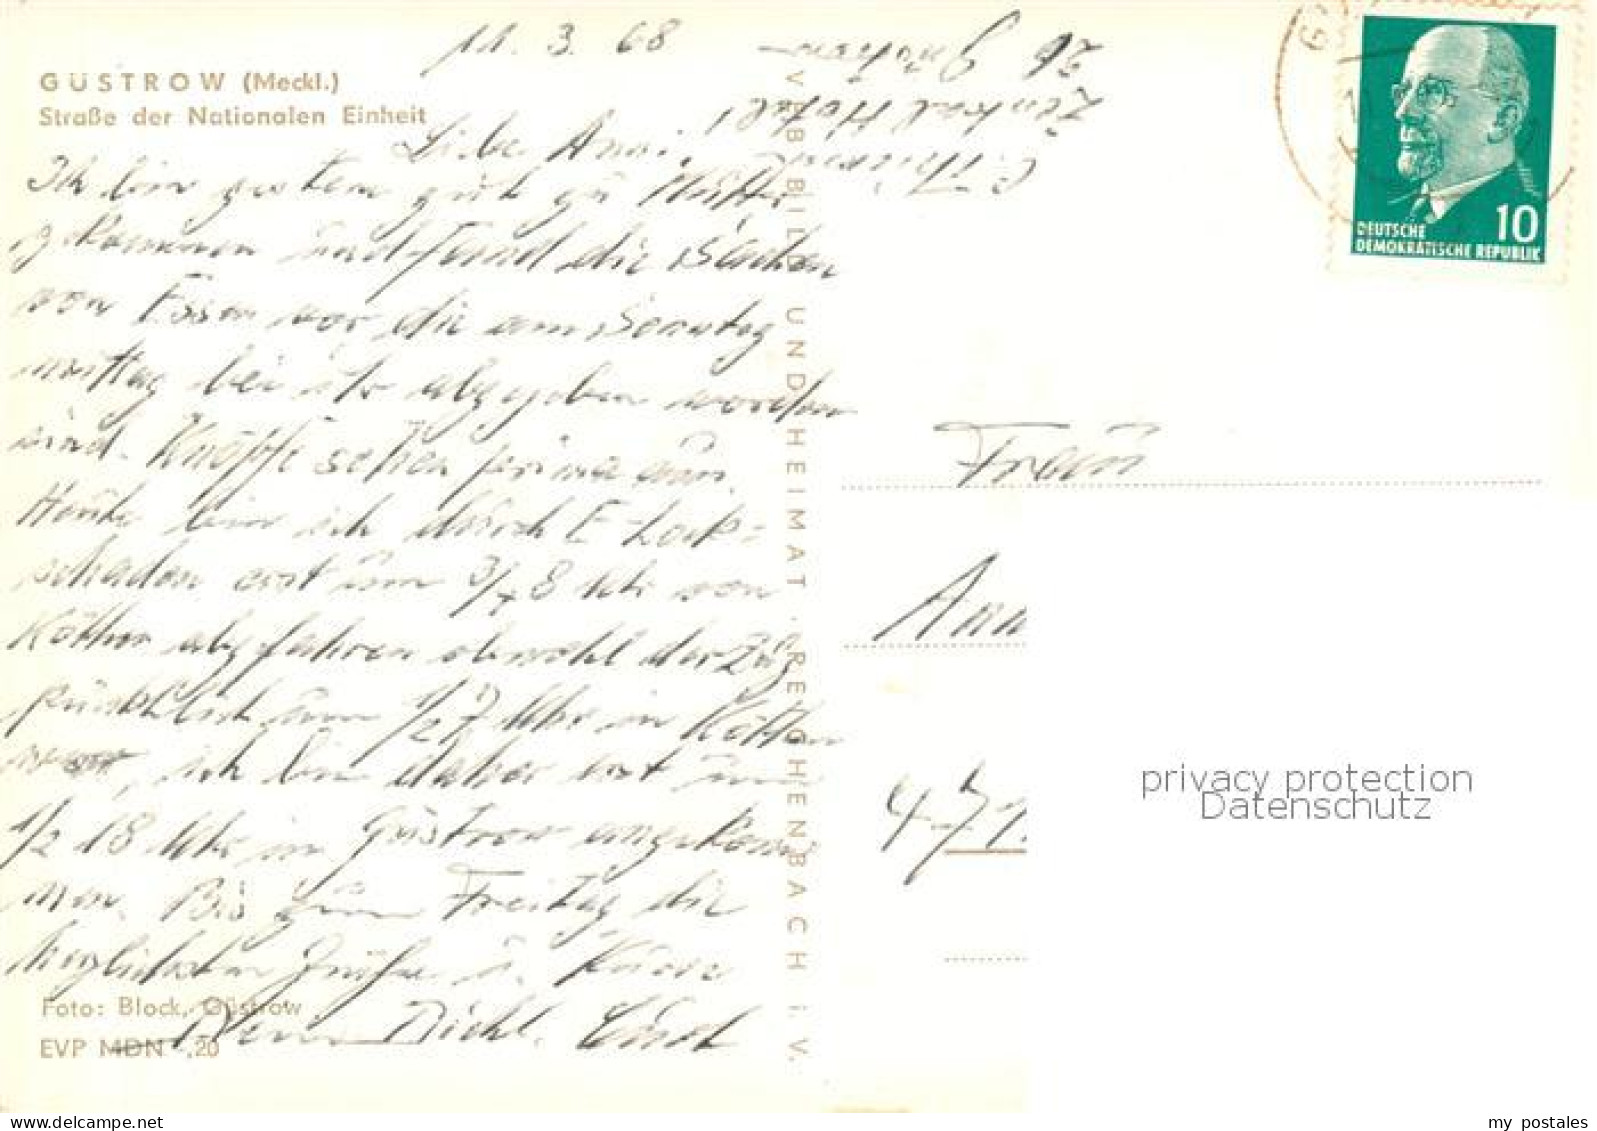 11. 3. 68
GÜSTROW (Meckl.)
Straße der Nationalen Einheit
Liebe Anni,
Ich bin gestern gut zu Mutti
gekommen und fand die Sachen
von Essen vor die am Sonntag
mittag bei ihr abgegeben worden
sind. Knöpfe sehen prima aus.
Heute bin ich durch E-Lok=
schaden erst um 3/4 8 Uhr von
Köthen abgefahren obwohl der Zug
pünktlich um 1/2 7 Uhr in Köthen
war, ich bin daher erst um
1/2 18 Uhr in Güstrow angekom
men. Bis zum Freitag die
herzlichsten Grüße u. Küsse
Foto: Block, Güstrow
Dein Dickl.
EVP MDN -,20
VEB BILD UND HEIMAT REICHENBACH I. V.
26 Güstrow
Zentral Hotel
DEUTSCHE
DEMOKRATISCHE REPUBLIK
10
Frau
Ann
privacy protection
Datenschutz
my postales